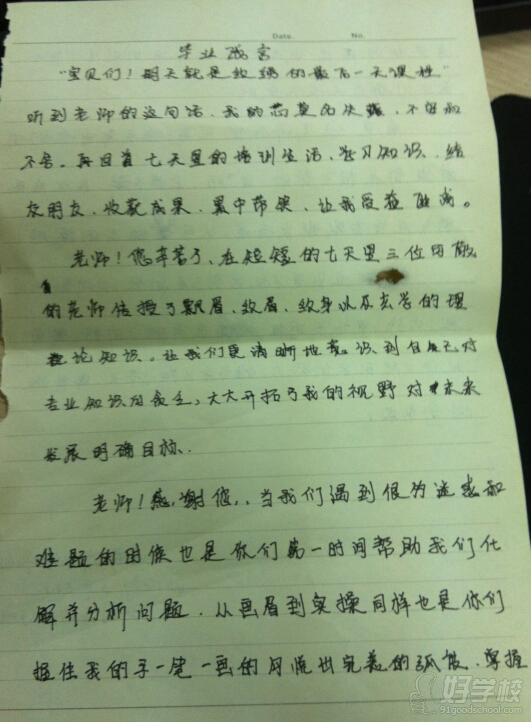 Date. No.
毕业感言
"宝贝们！明天就是纹绣的最后一天课程"
听到老师的这句话，我的心莫名失落、不安和
不舍。再回首七天里的培训生活、学习知识、结
友朋友、收获成果、累中带笑、让我受益匪浅。
老师！您辛苦了、在短短的七天里三位可敬
的老师传授了飘眉、纹眉、纹身以及玄学的理
论知识。让我们更清晰地意识到自己对
专业知识的贫乏，大大开拓了我的视野对未来
发展明确目标、
老师！感谢您、当我们遇到很为迷惑和
难题的时候也是你们第一时间帮助我们化
解并分析问题、从画眉到实操同样也是你们
握住我的手一笔一画的勾流出完美的弧度、掌握
好学校
91goodschool.com